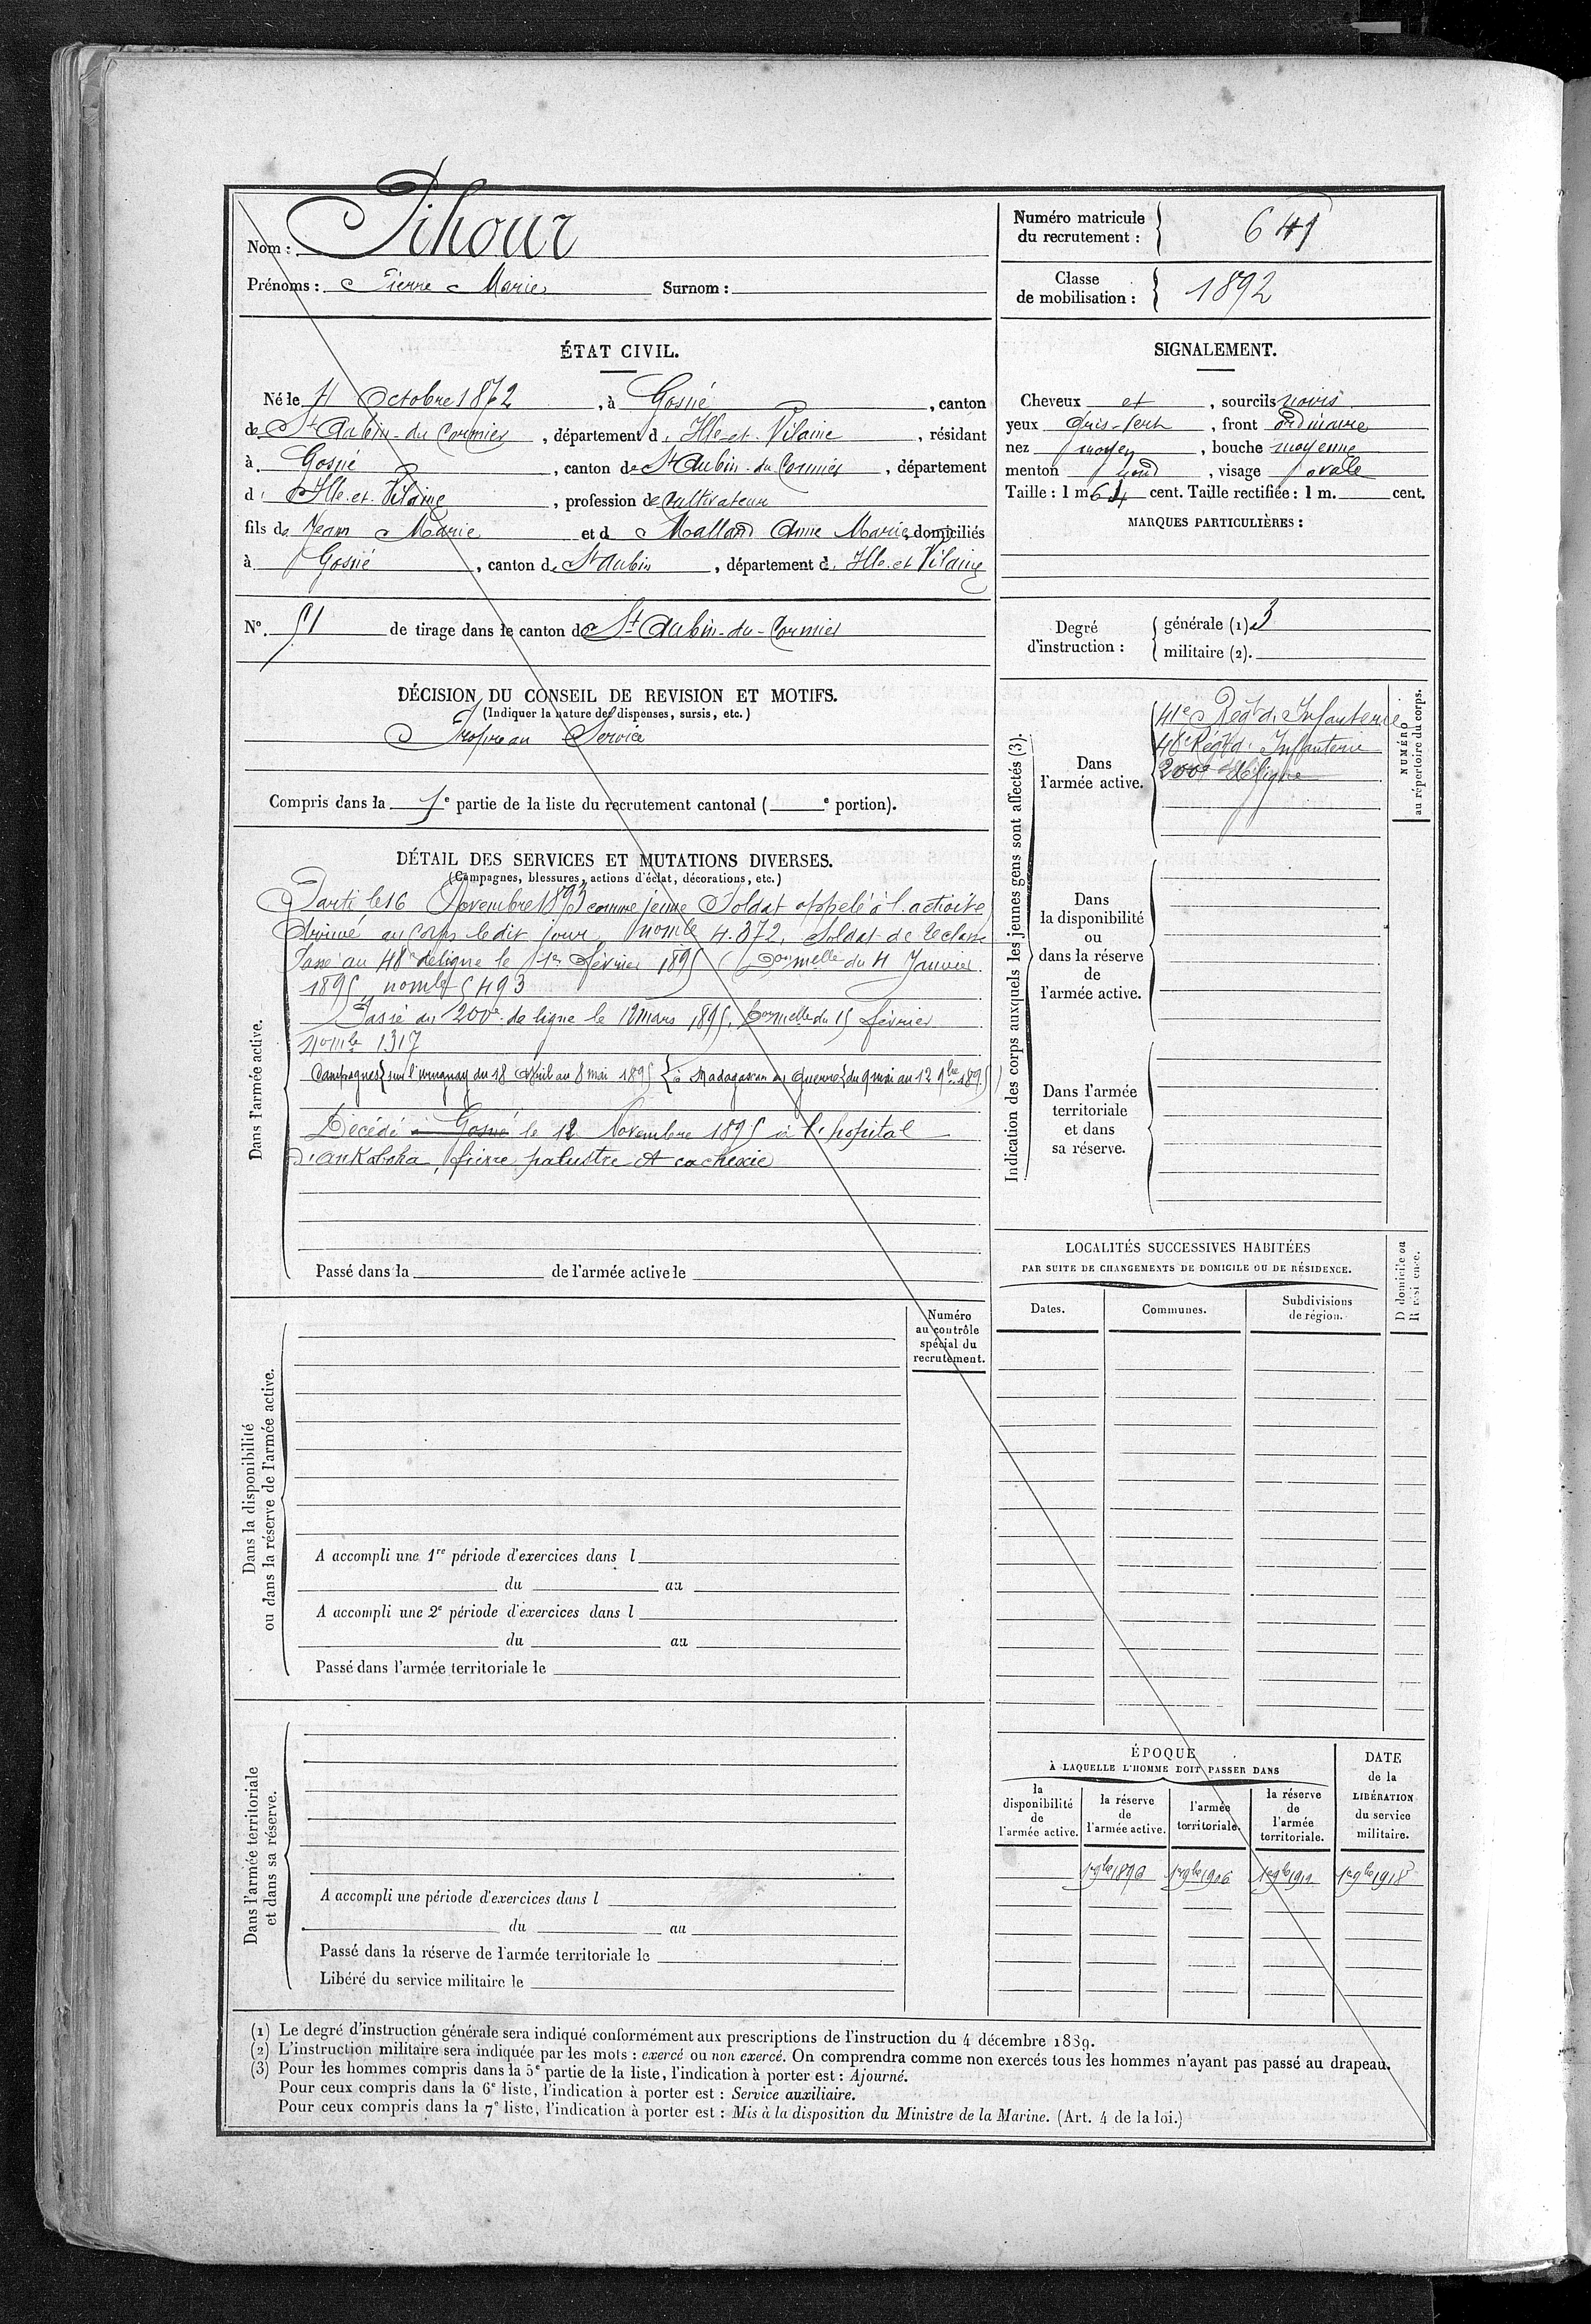 Nom : Pihour
Prénoms : Pierre Marie Surnom :
Numéro matricule du recrutement : 641
Classe de mobilisation : 1892
ÉTAT CIVIL.
Né le Octobre 1872, à Gosné, canton
de St Aubin-du-Cormier, département d'Ille-et-Vilaine, résidant
à Gosné, canton de St Aubin-du-Cormier, département
d'Ille-et-Vilaine, profession de Cultivateur
fils de Jean Marie et d Mallard Anne Marie, domiciliés
à Gosné, canton de St Aubin, département d'Ille-et-Vilaine
N°. 51 de tirage dans le canton de St Aubin-du-Cormier
SIGNALEMENT.
Cheveux et, sourcils noirs
yeux Gris-Vert, front ordinaire
nez moyen, bouche moyenne
menton rond, visage ovale
Taille : 1 m. 64 cent. Taille rectifiée : 1 m. cent.
MARQUES PARTICULIÈRES :
Degré d'instruction :
générale (1) 3
militaire (2).
DÉCISION DU CONSEIL DE REVISION ET MOTIFS.
(Indiquer la nature des dispenses, sursis, etc.)
Propre au Service
Compris dans la 1e partie de la liste du recrutement cantonal ( e portion).
DÉTAIL DES SERVICES ET MUTATIONS DIVERSES.
(Campagnes, blessures, actions d'éclat, décorations, etc.)
Dans l'armée active.
Parti le 16 Novembre 1893 comme jeune Soldat appelé à l'activité
Arrivé au Corps le dit jour, nomle 4.372, Soldat de 2e classe
Passé au 48e de ligne le 1er Février 1895 ( melle du 4 Janvier
1895, nomle 5493
Passé au 200e de ligne le 12 mars 1895, melle du 15 février
nomle 1317
Campagnes { sur l'Uruguay du 18 Avril au 8 mai 1895 { à Madagascar en Guerre { du 9 mai au 12 9bre 1895
Décédé à Gosné le 12 Novembre 1895 à l'hopital
d'Ankaboka, fièvre palustre et cachexie
Passé dans la de l'armée active le
Indication des corps auxquels les jeunes gens sont affectés (3).
NUMÉRO au répertoire du corps.
Dans l'armée active.
41e Régt d'Infanterie
48e Régt d'Infanterie
200e de ligne
Dans la disponibilité ou dans la réserve de l'armée active.
Dans l'armée territoriale et dans sa réserve.
LOCALITÉS SUCCESSIVES HABITÉES
PAR SUITE DE CHANGEMENTS DE DOMICILE OU DE RÉSIDENCE.
Dates.
Communes.
Subdivisions de région.
D domicile ou R résidence.
Numéro au contrôle spécial du recrutement.
Dans la disponibilité ou dans la réserve de l'armée active.
A accompli une 1re période d'exercices dans l
du au
A accompli une 2e période d'exercices dans l
du au
Passé dans l'armée territoriale le
Dans l'armée territoriale et dans sa réserve.
A accompli une période d'exercices dans l
du au
Passé dans la réserve de l'armée territoriale le
Libéré du service militaire le
ÉPOQUE
À LAQUELLE L'HOMME DOIT PASSER DANS
la disponibilité de l'armée active.
la réserve de l'armée active.
l'armée territoriale.
la réserve de l'armée territoriale.
DATE de la LIBÉRATION du service militaire.
1er 9bre 1896 1er 9bre 1906 1er 9bre 1912 1er 9bre 1918
(1) Le degré d'instruction générale sera indiqué conformément aux prescriptions de l'instruction du 4 décembre 1889.
(2) L'instruction militaire sera indiquée par les mots : exercé ou non exercé. On comprendra comme non exercés tous les hommes n'ayant pas passé au drapeau.
(3) Pour les hommes compris dans la 5e partie de la liste, l'indication à porter est : Ajourné.
Pour ceux compris dans la 6e liste, l'indication à porter est : Service auxiliaire.
Pour ceux compris dans la 7e liste, l'indication à porter est : Mis à la disposition du Ministre de la Marine. (Art. 4 de la loi.)